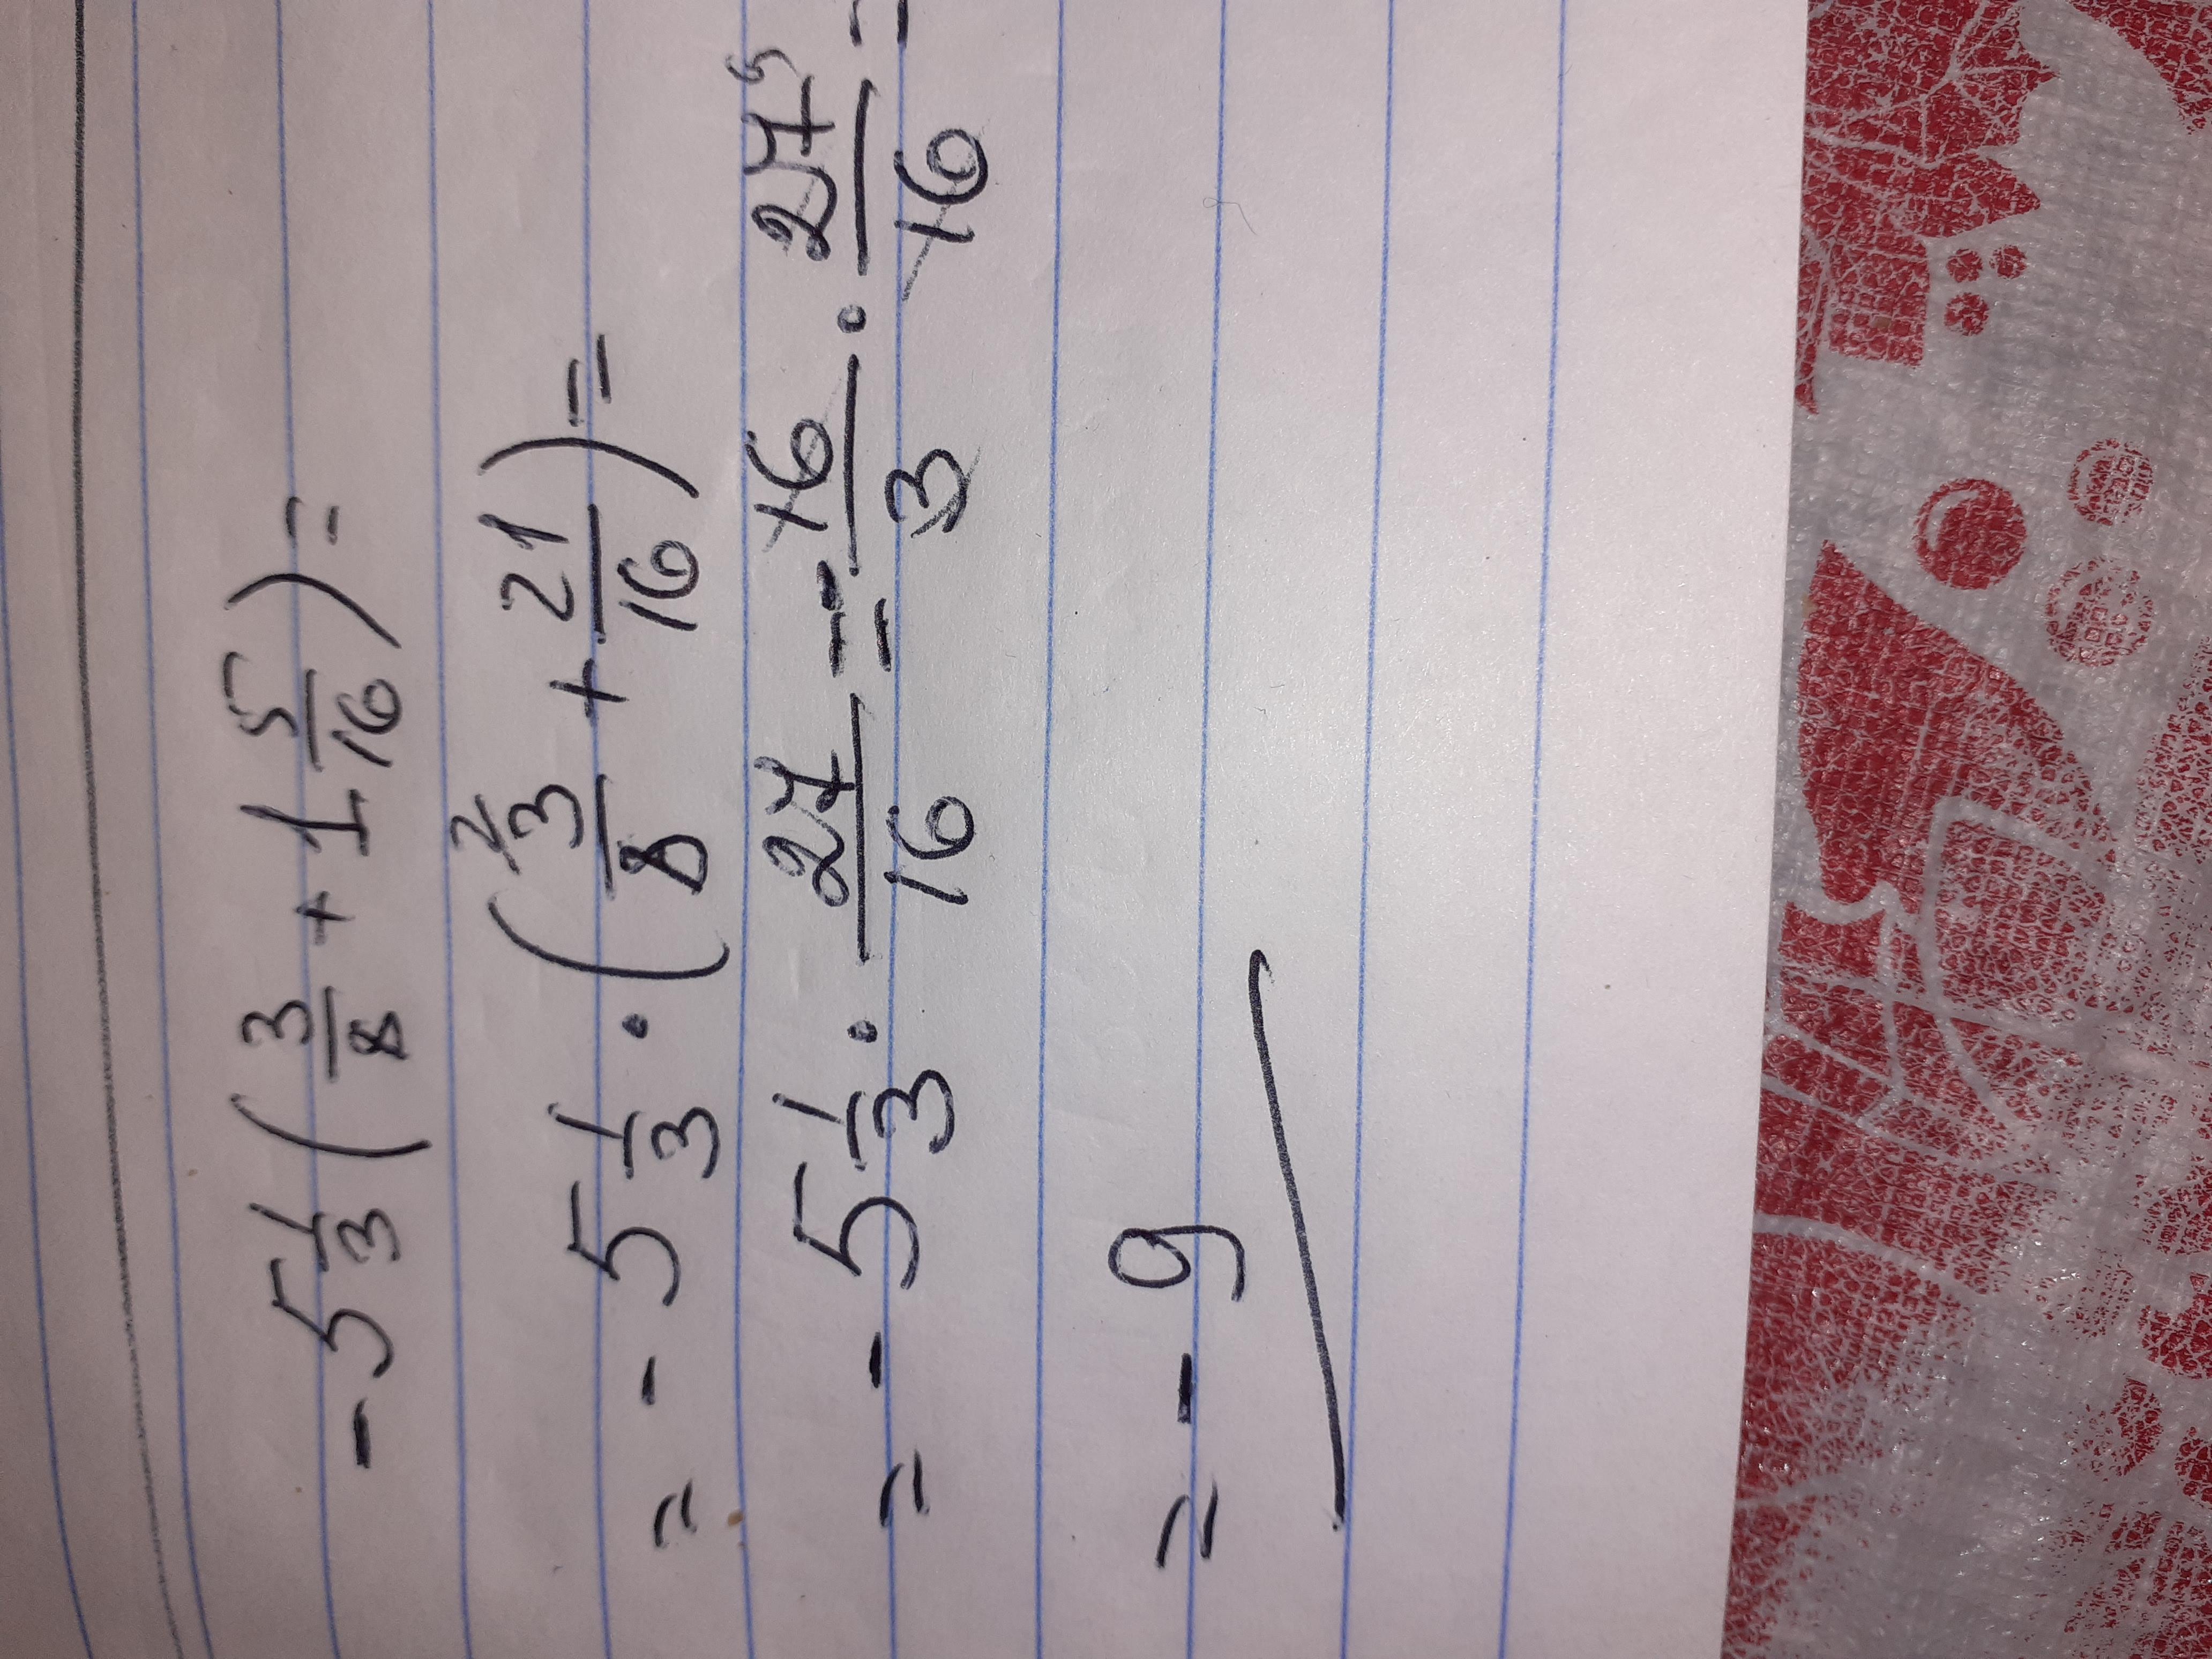 -5 1/3 (3/8 + 1 5/16) =
= -5 1/3 · (3/8 ² + 21/16) =
= -5 1/3 · 27/16 = -16/3 · 27/16 =
= -9